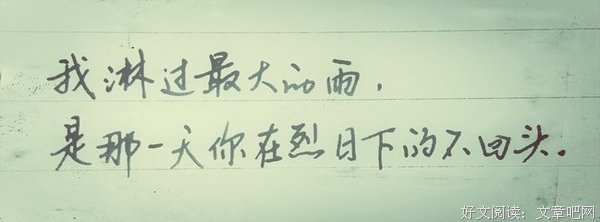 我淋过最大的雨，
是那一天你在烈日下的不回头。
好文阅读：文章吧网